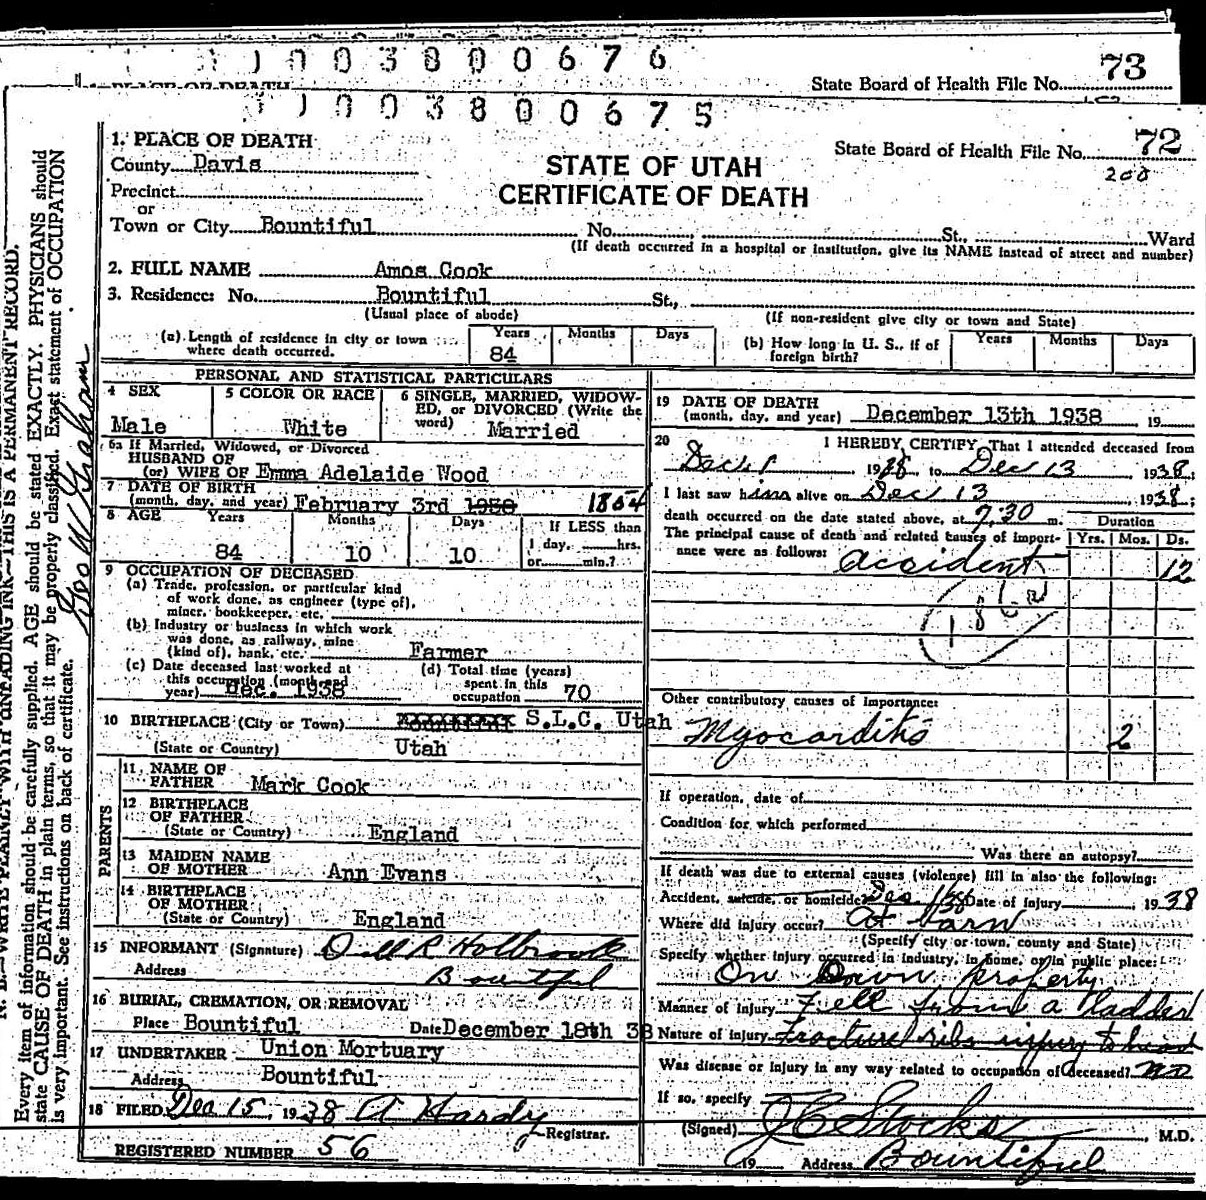 1 0 0 3 8 0 0 6 7 6
73
State Board of Health File No.
1 0 0 3 8 0 0 6 7 5
72
State Board of Health File No.
200
1. PLACE OF DEATH
County Davis
STATE OF UTAH
CERTIFICATE OF DEATH
Precinct
or
Town or City Bountiful No. St., Ward
(If death occurred in a hospital or institution, give its NAME instead of street and number)
2. FULL NAME Amos Cook
3. Residence: No. Bountiful St.,
(Usual place of abode) (If non-resident give city or town and State)
(a) Length of residence in city or town where death occurred. Years 84 Months Days
(b) How long in U. S., if of foreign birth? Years Months Days
PERSONAL AND STATISTICAL PARTICULARS
4 SEX Male
5 COLOR OR RACE White
6 SINGLE, MARRIED, WIDOWED, or DIVORCED (Write the word) Married
6a If Married, Widowed, or Divorced
HUSBAND OF
(or) WIFE OF Emma Adelaide Wood
7 DATE OF BIRTH
(month, day, and year) February 3rd 1938 1854
8 AGE Years 84 Months 10 Days 10 If LESS than 1 day, hrs. or min.?
9 OCCUPATION OF DECEASED
(a) Trade, profession, or particular kind
of work done, as engineer (type of),
miner, bookkeeper, etc.
(b) Industry or business in which work
was done, as railway, mine
(kind of), bank, etc. Farmer
(c) Date deceased last worked at
this occupation (month and
year) Dec. 1938
(d) Total time (years)
spent in this
occupation 70
10 BIRTHPLACE (City or Town) Bountiful S.L.C. Utah
(State or Country) Utah
PARENTS
11 NAME OF
FATHER Mark Cook
12 BIRTHPLACE
OF FATHER
(State or Country) England
13 MAIDEN NAME
OF MOTHER Ann Evans
14 BIRTHPLACE
OF MOTHER
(State or Country) England
15 INFORMANT (Signature) Dell R Holbrook
Address Bountiful
16 BURIAL, CREMATION, OR REMOVAL
Place Bountiful Date December 18th 38
17 UNDERTAKER Union Mortuary
Address Bountiful
18 FILED Dec 15, 1938 A Hardy
Registrar.
REGISTERED NUMBER 56
19 DATE OF DEATH
(month, day, and year) December 13th 1938 19
20 I HEREBY CERTIFY, That I attended deceased from
Dec 1 1938 to Dec 13 1938;
I last saw him alive on Dec 13 1938;
death occurred on the date stated above, at 7:30 m.
Duration
The principal cause of death and related causes of importance were as follows: Yrs. Mos. Ds.
accident 12
Other contributory causes of importance:
Myocarditis 2
If operation, date of
Condition for which performed
Was there an autopsy?
If death was due to external causes (violence) fill in also the following:
Accident, suicide, or homicide? Dec 1/38 Date of injury 1938
Where did injury occur? At barn
(Specify city or town, county and State)
Specify whether injury occurred in industry, in home, or in public place:
On Own property
Manner of injury Fell from a ladder
Nature of injury Fracture ribs injury to head
Was disease or injury in any way related to occupation of deceased? no
If so, specify
(Signed) J C Stocks, M.D.
19 Address Bountiful
Every item of information should be carefully supplied. AGE should be stated EXACTLY. PHYSICIANS should
state CAUSE OF DEATH in plain terms, so that it may be properly classified. Exact statement of OCCUPATION
is very important. See instructions on back of certificate.